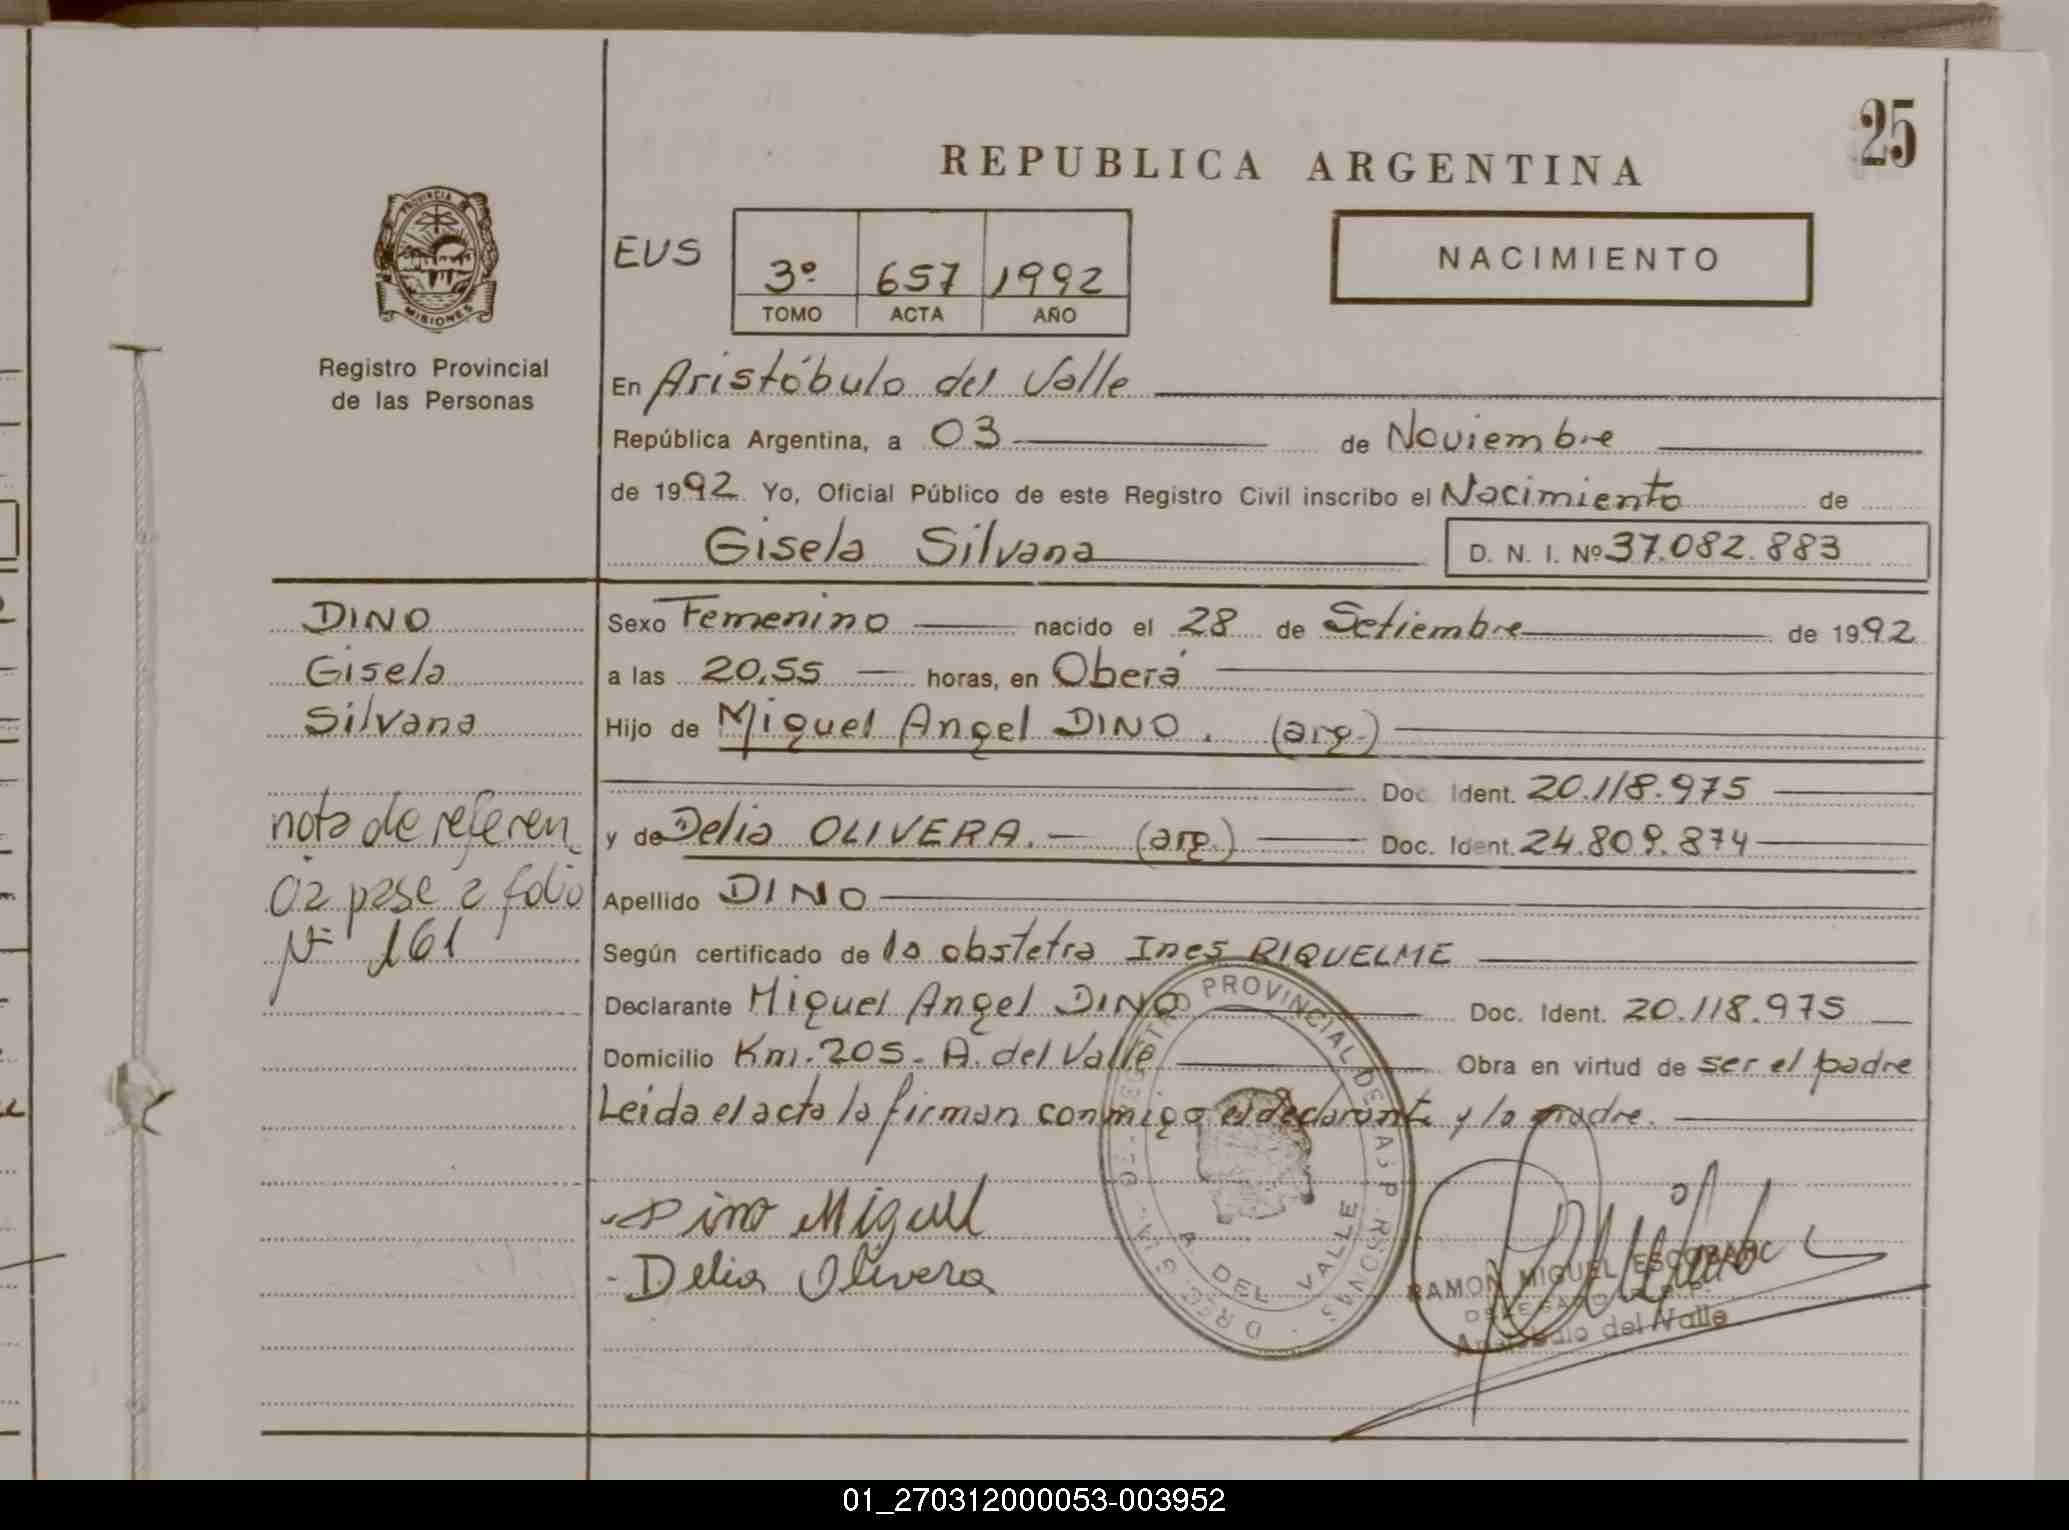 25
REPUBLICA ARGENTINA
PROVINCIA DE
MISIONES
Registro Provincial
de las Personas
EUS
3º 657 1992
TOMO ACTA AÑO
NACIMIENTO
En Aristóbulo del Valle
República Argentina, a 03 de Noviembre
de 1992 Yo, Oficial Público de este Registro Civil inscribo el Nacimiento de
Gisela Silvana D. N. I. Nº 37.082.883
DINO
Gisela
Silvana
nota de referen
cia pase a folio
Nº 161
Sexo Femenino nacido el 28 de Setiembre de 1992
a las 20,55 horas, en Oberá
Hijo de Miguel Angel DINO. (arg.)
Doc. Ident. 20.118.975
y de Delia OLIVERA. (arg.) Doc. Ident. 24.809.874
Apellido DINO
Según certificado de la obstetra Ines RIQUELME
Declarante Miguel Angel DINO Doc. Ident. 20.118.975
Domicilio Km. 205 - A. del Valle Obra en virtud de ser el padre
Leida el acta la firman conmigo el declarante y la madre.
Dino Miguel
- Delia Olivera
REGISTRO PROVINCIAL DE LAS PERSONAS
A DEL VALLE
RAMON MIGUEL ESCOBAR
del Valle
01_270312000053-003952